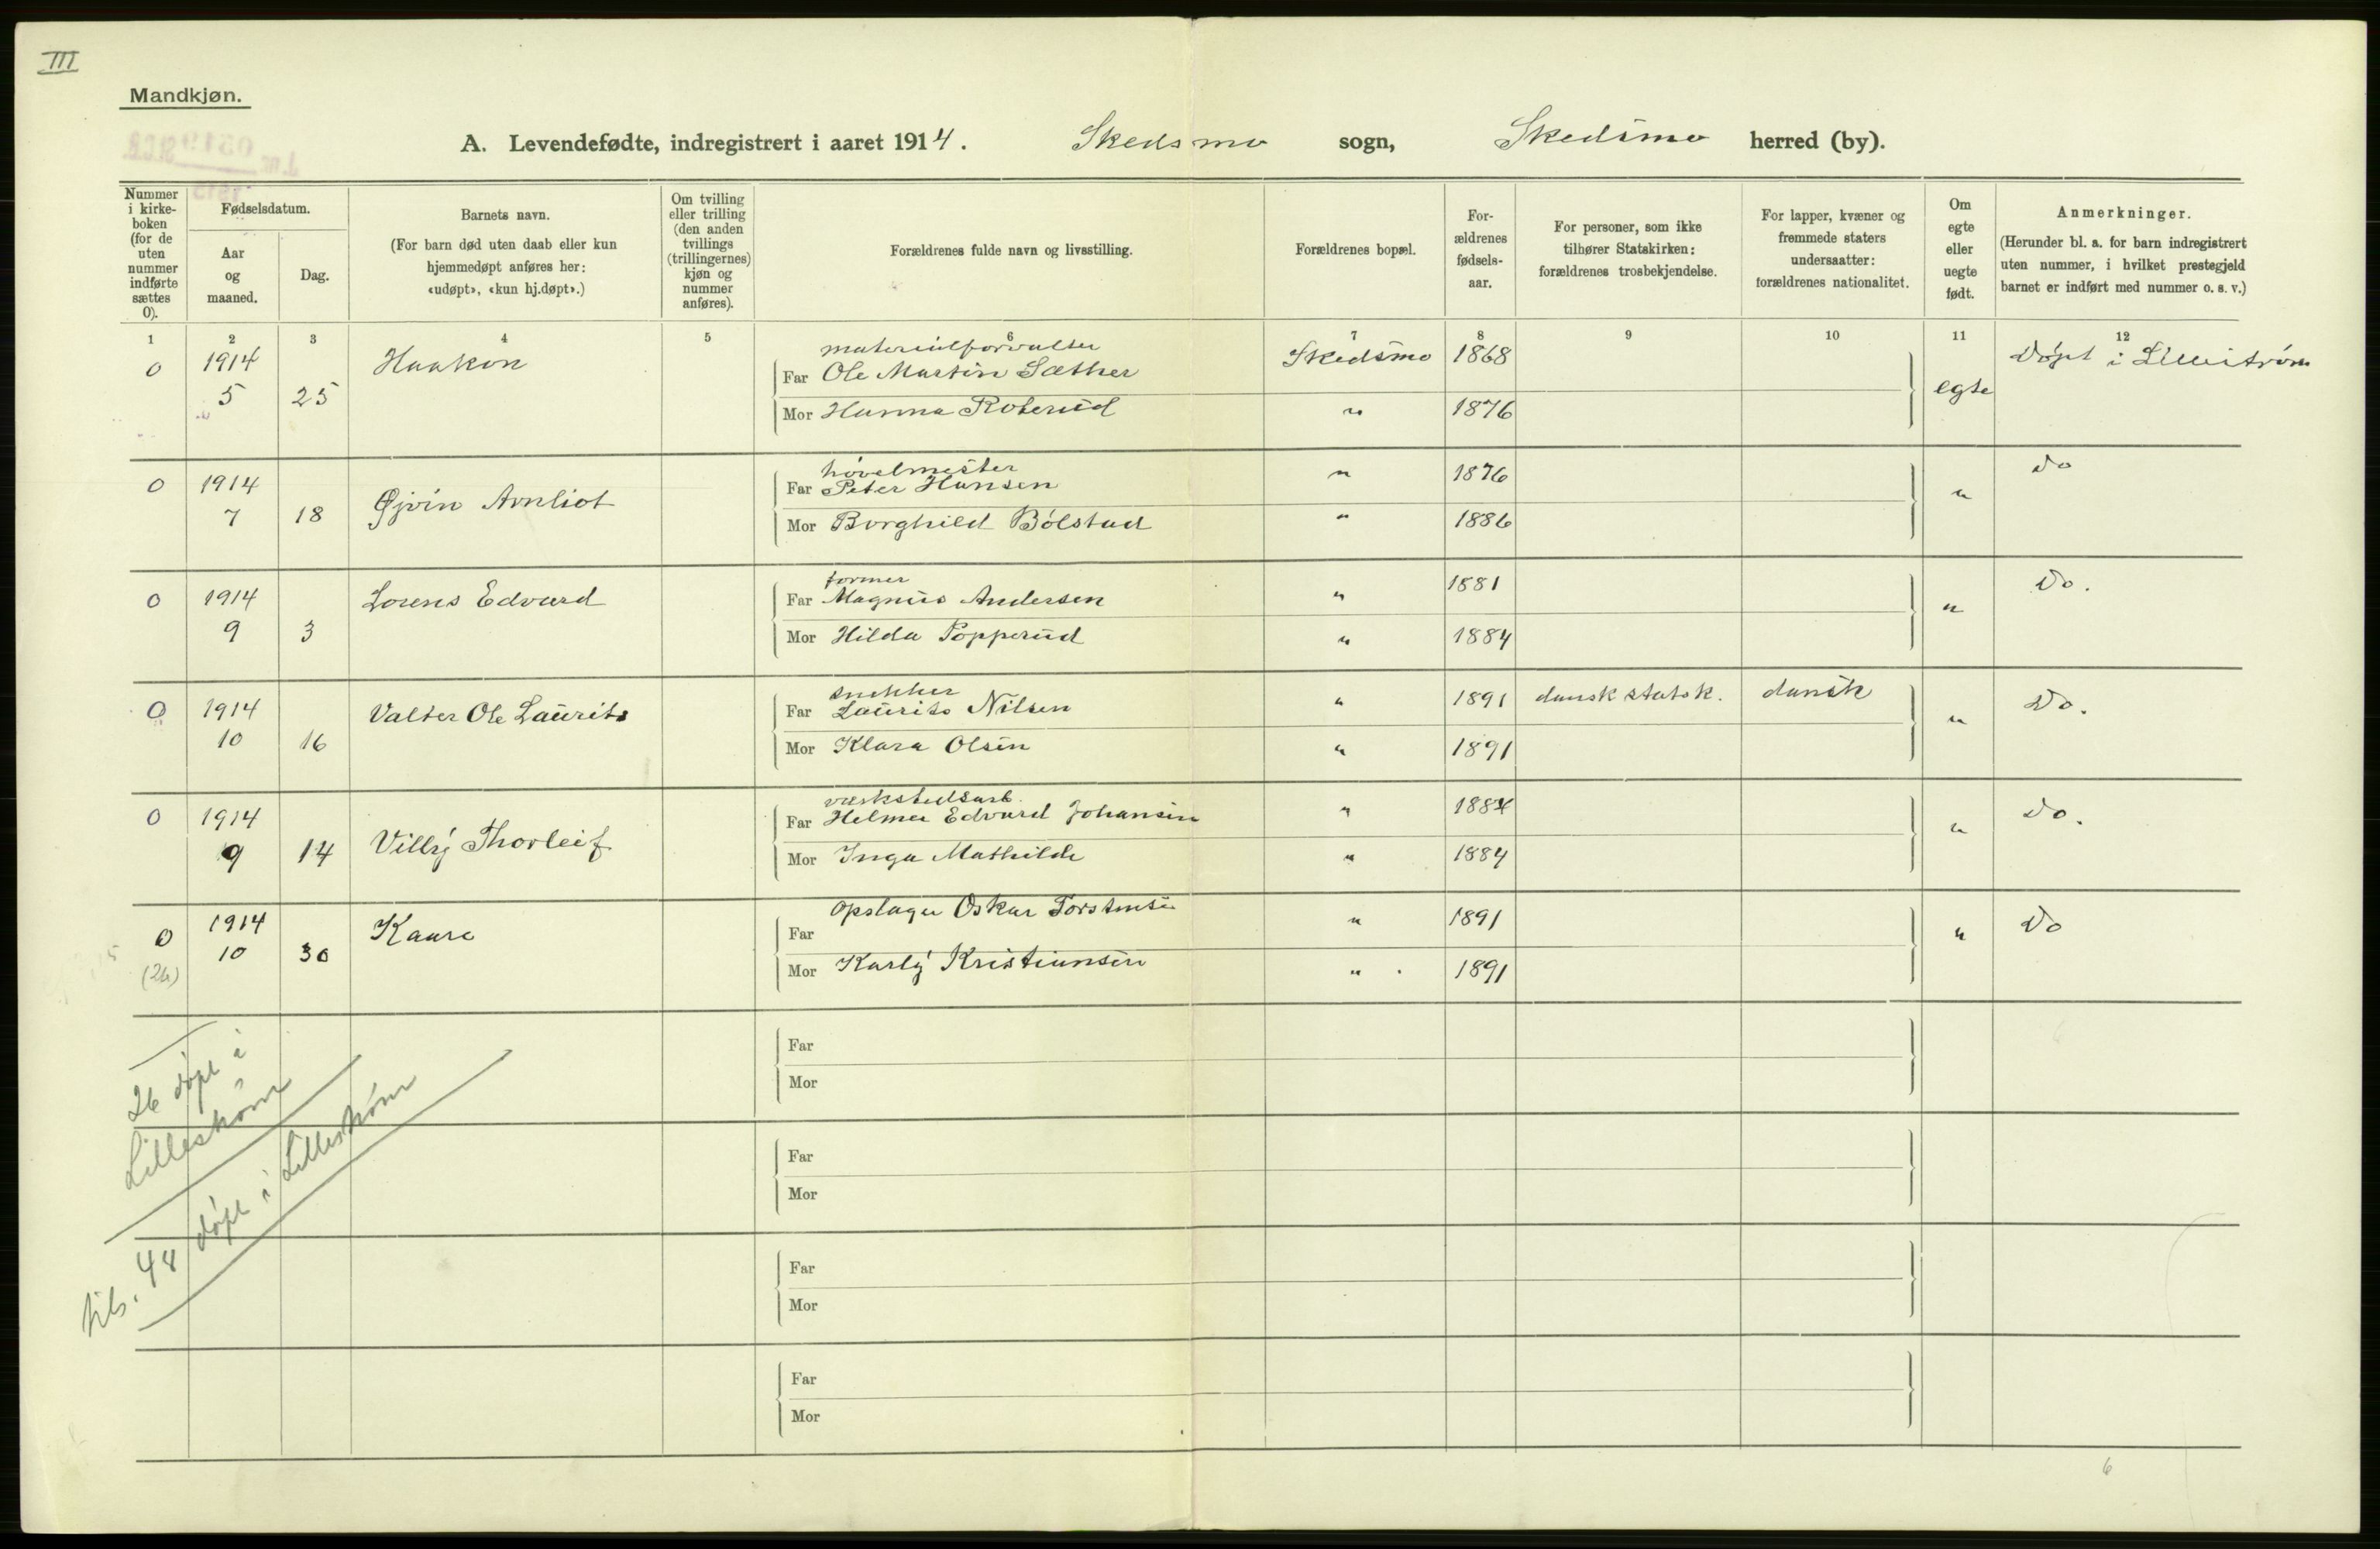 III
Mandkjøn.
A. Levendefødte, indregistrert i aaret 1914. Skedsmo sogn, Skedsmo herred (by).
Nummer i kirke-boken (for de uten nummer indførte sættes 0).
Fødselsdatum.
Aar og maaned.
Dag.
Barnets navn.
(For barn død uten daab eller kun hjemmedøpt anføres her: «udøpt», «kun hj.døpt».)
Om tvilling eller trilling (den anden tvillings (trillingernes) kjøn og nummer anføres).
Forældrenes fulde navn og livsstilling.
Forældrenes bopæl.
For-ældrenes fødsels-aar.
For personer, som ikke tilhører Statskirken: forældrenes trosbekjendelse.
For lapper, kvæner og fremmede staters undersaatter: forældrenes nationalitet.
Om egte eller uegte født.
Anmerkninger.
(Herunder bl. a. for barn indregistrert uten nummer, i hvilket prestegjeld barnet er indført med nummer o. s. v.)
1 2 3 4 5 6 7 8 9 10 11 12
materialforvalter
0 1914 Haakon Far Ole Martin Sæther Skedsmo 1868 Døpt i Lillestrøm
5 25 Mor Hanna Roterud " 1876 egte
høvelmester
0 1914 Øjvin Arnliot Far Peter Hansen " 1876 " Do
7 18 Mor Borghild Bølstad " 1886
former
0 1914 Lorens Edvard Far Magnus Andersen " 1881 " Do.
9 3 Mor Hilda Popperud " 1884
snekker
0 1914 Valter Ole Laurits Far Laurits Nilsen " 1891 dansk statsk. dansk " Do.
10 16 Mor Klara Olsen " 1891
verkstedsarb.
0 1914 Villy Thorleif Far Helmer Edvard Johansen " 1884 " Do.
9 14 Mor Inga Mathilde " 1884
Opslager Oskar Torstensen
0 1914 Kaare Far " 1891 " Do
(26) 10 30 Mor Karly Kristiansen " 1891
Far
Mor
Far
Mor
Far
Mor
Far
Mor
26 døpt i
Lillestrøm
tils. 48 døpt i Lillestrøm
6